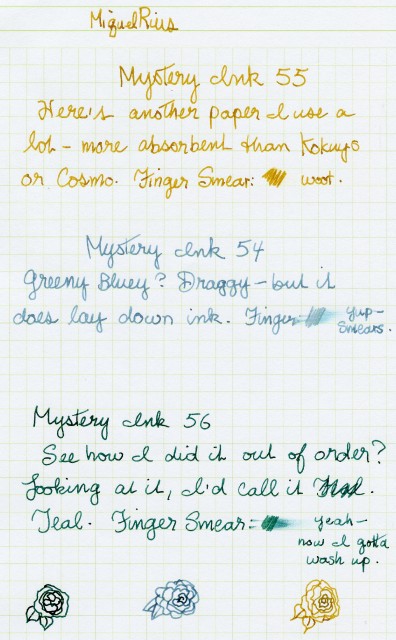 MiquelRius
Mystery Ink 55
Here's another paper I use a
lot - more absorbent than Kokuyo
or Cosmo. Finger Smear: woot.
Mystery Ink 54
Greeny Bluey? Draggy - but it
does lay down ink. Finger yup -
smears.
Mystery Ink 56
See how I did it out of order?
Looking at it, I'd call it
Teal. Finger Smear: yeah -
now I gotta
wash up.